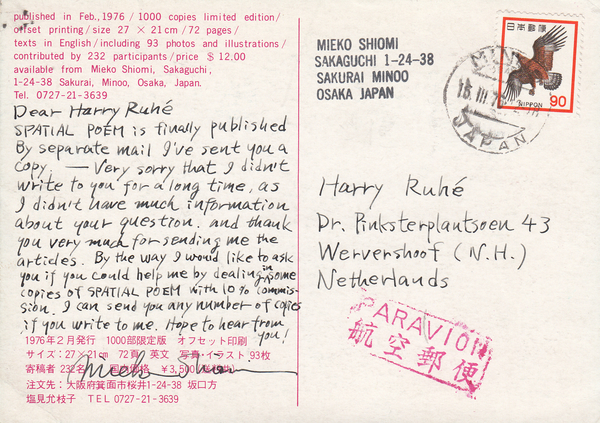 published in Feb.,1976 / 1000 copies limited edition/
offset printing / size 27 × 21cm / 72 pages /
texts in English / including 93 photos and illustrations /
contributed by 232 participants / price $ 12.00
available from Mieko Shiomi, Sakaguchi,
1-24-38 Sakurai, Minoo, Osaka, Japan.
Tel. 0727-21-3639
Dear Harry Ruhé
SPATIAL POEM is finally published
By separate mail I've sent you a
copy. — Very sorry that I didn't
write to you for a long time, as
I didn't have much information
about your question. and thank
you very much for sending me the
articles. By the way I would like to ask
you if you could help me by dealing in some
copies of SPATIAL POEM with 10% commis-
sion. I can send you any number of copies
if you write to me. Hope to hear from
you!
1976年2月発行 1000部限定版 オフセット印刷
サイズ:27×21cm 72頁 英文 写真・イラスト93枚
寄稿者 232名 国内価格 ¥3,500
Mieko Shiomi
注文先:大阪府箕面市桜井1-24-38 坂口方
塩見允枝子 TEL 0727-21-3639
MIEKO SHIOMI
SAKAGUCHI 1-24-38
SAKURAI MINOO
OSAKA JAPAN
日本郵便
NIPPON
90
MINOO
JAPAN
Harry Ruhé
Dr. Pinksterplantsoen 43
Wervershoof (N.H.)
Netherlands
PARAVION
航空郵便